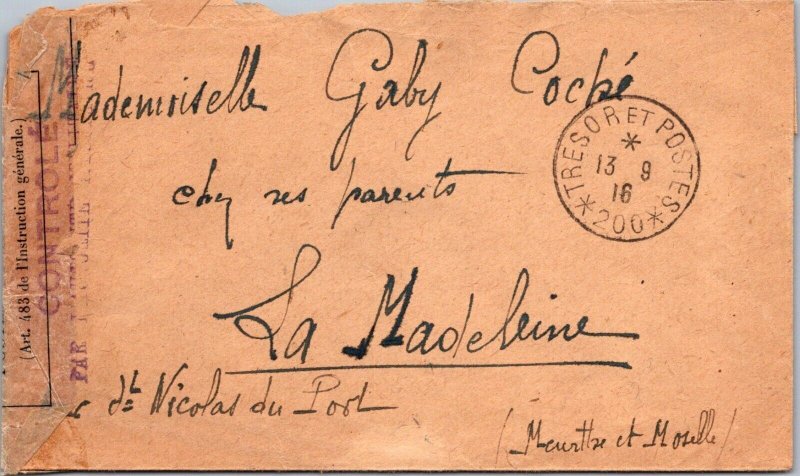 Mademoiselle Gaby Coché
chez ses parents
La Madeleine
St Nicolas du Port
(Meurthe et Moselle)
TRESOR ET POSTES
13 9
16
*200*
(Art. 483 de l'Instruction générale.)
CONTROLE
PAR